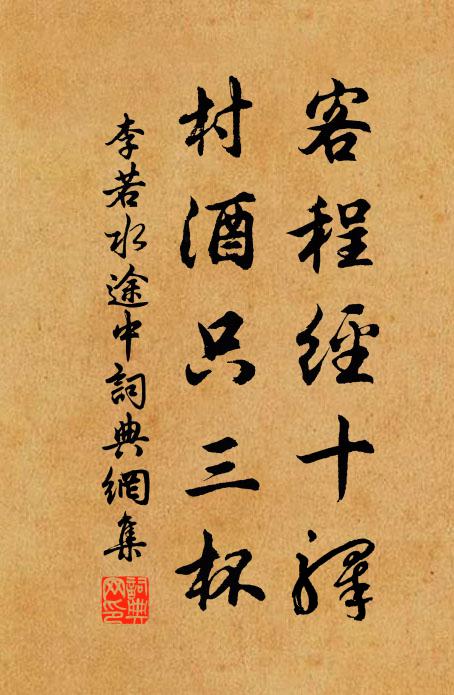 客程經十驛
村酒只三杯
李若水途中詞典網集
詞典網印